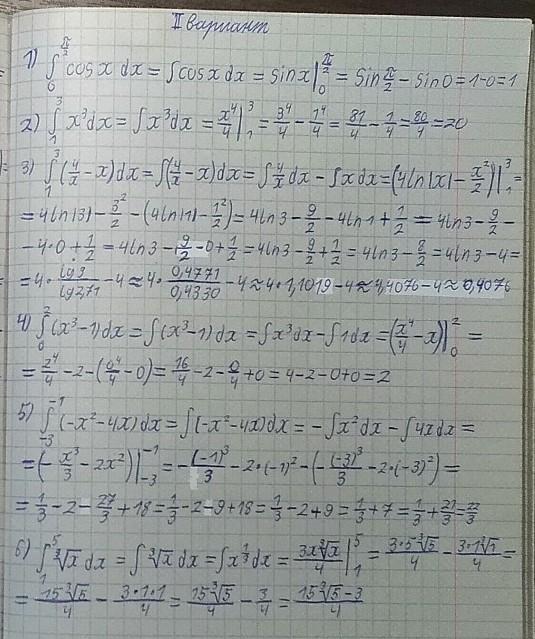 II вариант
1) ∫₀^{π/2} cos x dx = ∫cos x dx = sin x |₀^{π/2} = sin π/2 − sin 0 = 1−0 = 1
2) ∫₁³ x³dx = ∫x³dx = x⁴/4 |₁³ = 3⁴/4 − 1⁴/4 = 81/4 − 1/4 = 80/4 = 20
3) ∫₁³ (4/x − x)dx = ∫(4/x − x)dx = ∫4/x dx − ∫x dx = (4ln|x| − x²/2)|₁³ =
= 4ln|3| − 3²/2 − (4ln|1| − 1²/2) = 4ln3 − 9/2 − 4ln1 + 1/2 = 4ln3 − 9/2 −
− 4·0 + 1/2 = 4ln3 − 9/2 − 0 + 1/2 = 4ln3 − 9/2 + 1/2 = 4ln3 − 8/2 = 4ln3 − 4 =
= 4· lg3/lg2,71 − 4 ≈ 4· 0,4771/0,4330 − 4 ≈ 4·1,1019 − 4 ≈ 4,4076 − 4 ≈ 0,4076
4) ∫₀² (x³−1)dx = ∫(x³−1)dx = ∫x³dx − ∫1dx = (x⁴/4 − x)|₀² =
= 2⁴/4 − 2 − (0⁴/4 − 0) = 16/4 − 2 − 0/4 + 0 = 4−2−0+0 = 2
5) ∫₋₃⁻¹ (−x²−4x)dx = ∫(−x²−4x)dx = −∫x²dx − ∫4xdx =
= (−x³/3 − 2x²)|₋₃⁻¹ = −(−1)³/3 − 2·(−1)² − (−(−3)³/3 − 2·(−3)²) =
= 1/3 − 2 − 27/3 + 18 = 1/3 − 2 − 9 + 18 = 1/3 − 2 + 9 = 1/3 + 7 = 1/3 + 21/3 = 22/3
6) ∫₁⁵ ∛x dx = ∫∛x dx = ∫x^{1/3} dx = 3x∛x/4 |₁⁵ = 3·5∛5/4 − 3·1∛1/4 =
= 15∛5/4 − 3·1·1/4 = 15∛5/4 − 3/4 = 15∛5−3/4